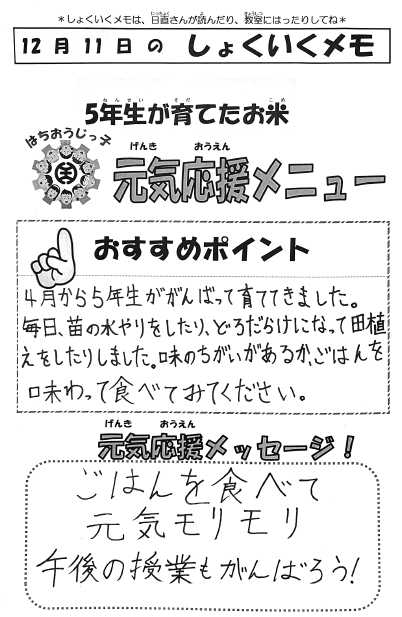 ＊しょくいくメモは、日直さんが読んだり、教室にはったりしてね＊
12月11日の しょくいくメモ
5年生が育てたお米
はちおうじっ子
元気応援メニュー
おすすめポイント
4月から5年生ががんばって育ててきました。
毎日、苗の水やりをしたり、どろだらけになって田植
えをしたりしました。味のちがいがあるか、ごはんを
味わって食べてみてください。
元気応援メッセージ！
ごはんを食べて
元気モリモリ
午後の授業もがんばろう！